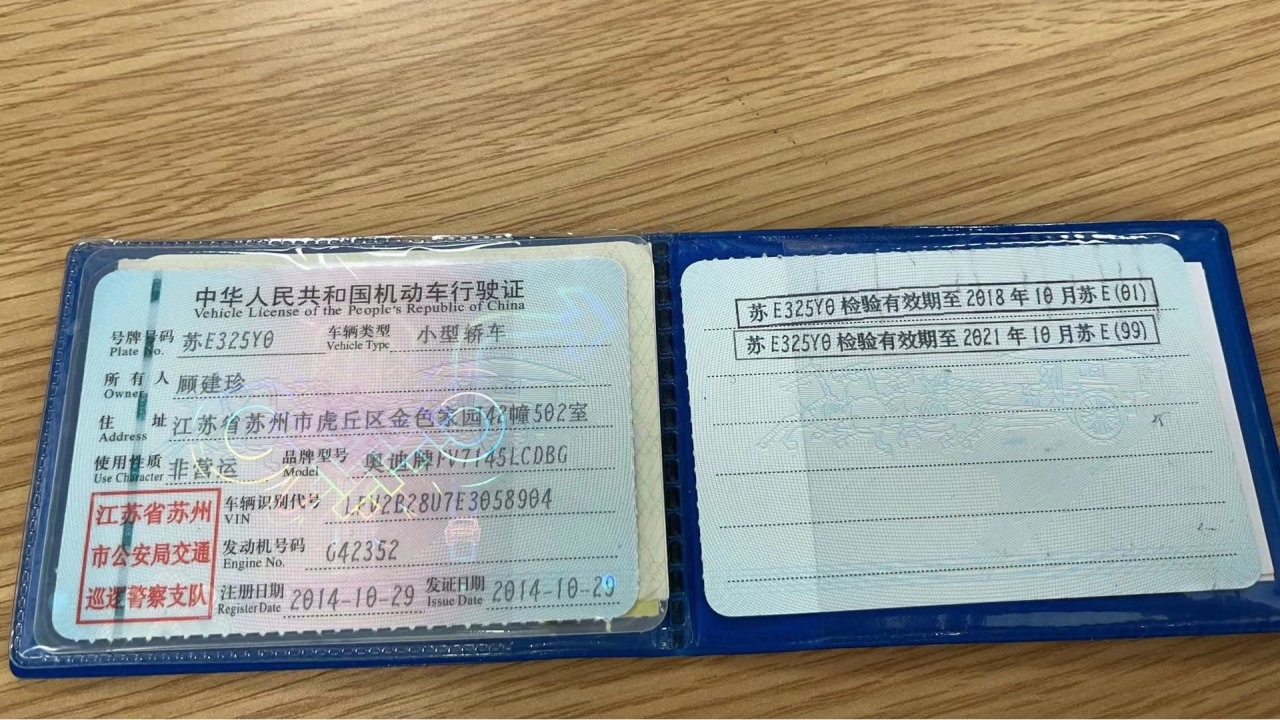 中华人民共和国机动车行驶证
Vehicle License of the People's Republic of China
号牌号码 苏E325Y0 车辆类型 小型轿车
Plate No. Vehicle Type
所有人 顾建珍
Owner
住址 江苏省苏州市虎丘区金色家园42幢502室
Address
使用性质 非营运 品牌型号 奥迪牌FV7145LCDBG
Use Character Model
江苏省苏州
市公安局交通
巡逻警察支队
车辆识别代号 LFV2B28U7E3058904
VIN
发动机号码 G42352
Engine No.
注册日期 2014-10-29 发证日期 2014-10-29
Register Date Issue Date
苏E325Y0检验有效期至2018年10月苏E(01)
苏E325Y0检验有效期至2021年10月苏E(99)